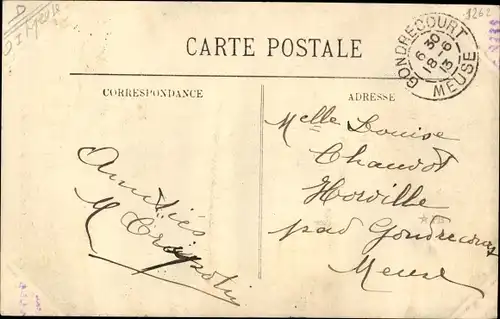 1262
GONDRECOURT
6 30
18-6
13
MEUSE
CARTE POSTALE
CORRESPONDANCE
ADRESSE
Melle Louise
Chauvot
Horville
par Gondrecourt
Meuse
Amitiés
M